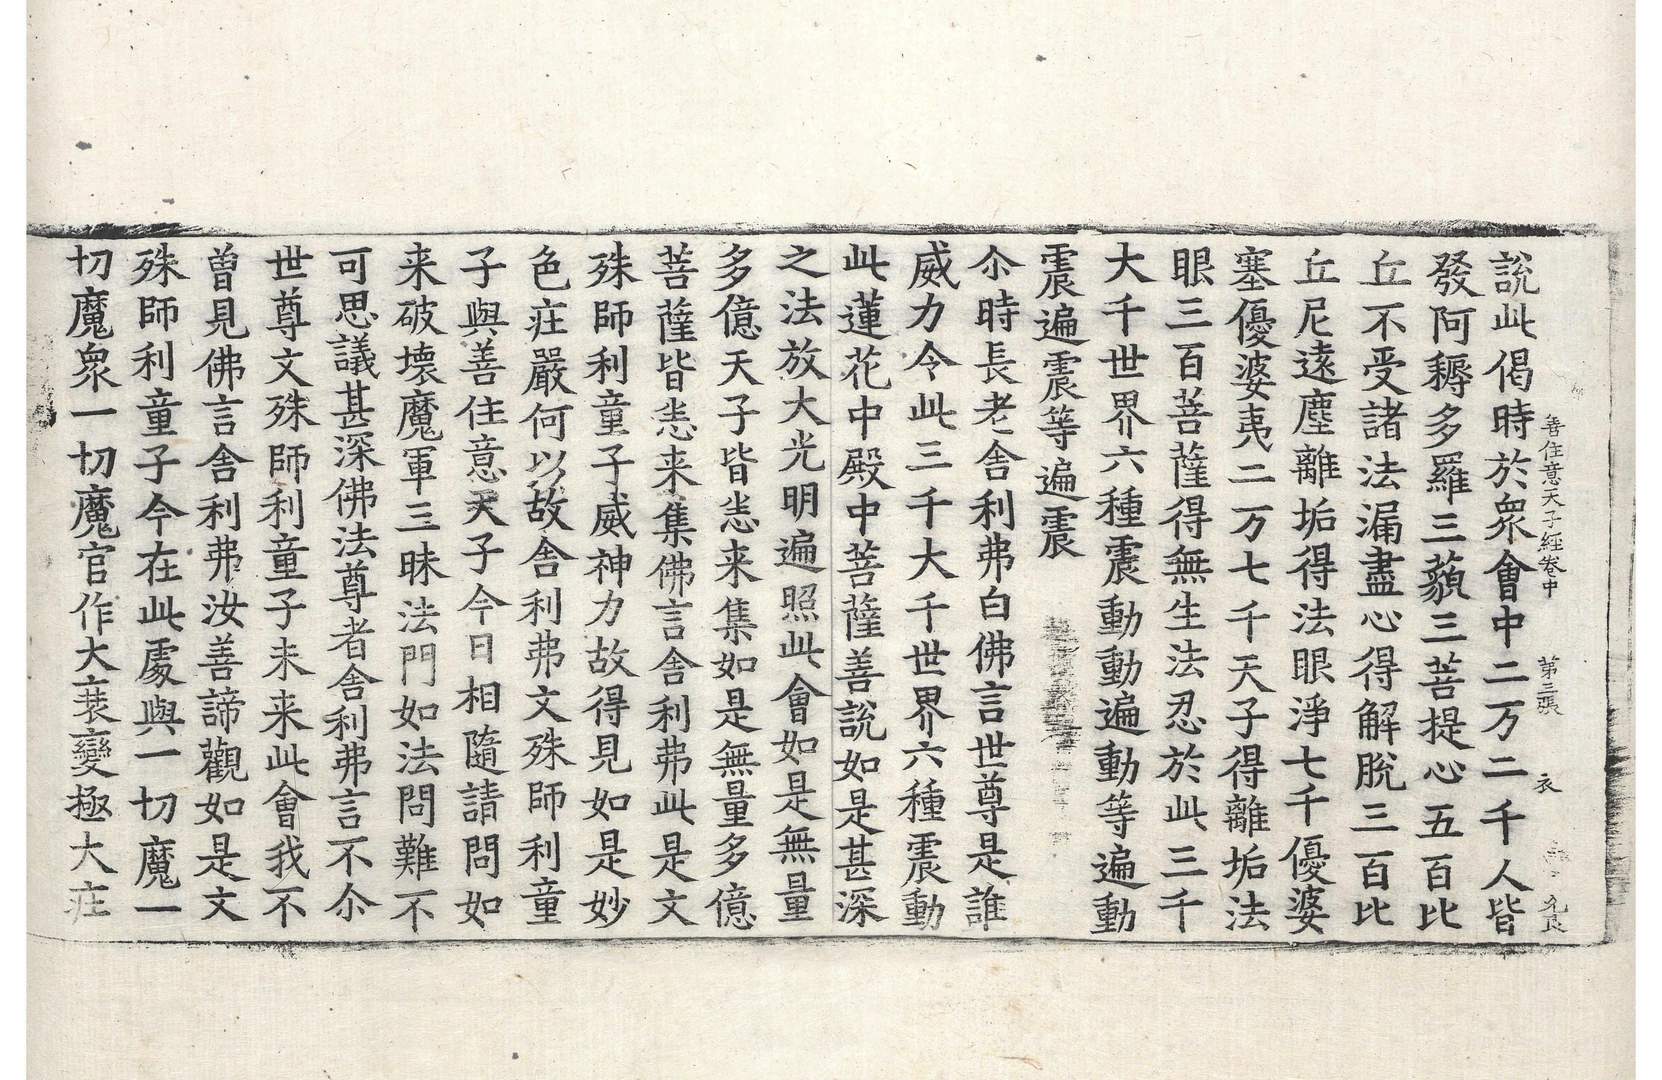 善住意天子經卷中　第三張　衣
說此偈時於衆會中二万二千人皆
發阿耨多羅三藐三菩提心五百比
丘不受諸法漏盡心得解脫三百比
丘尼遠塵離垢得法眼淨七千優婆
塞優婆夷二万七千天子得離垢法
眼三百菩薩得無生法忍於此三千
大千世界六種震動動遍動等遍動
震遍震等遍震
尒時長老舍利弗白佛言世尊是誰
威力令此三千大千世界六種震動
此蓮花中殿中菩薩善說如是甚深
之法放大光明遍照此會如是無量
多億天子皆悉来集如是無量多億
菩薩皆悉来集佛言舍利弗此是文
殊師利童子威神力故得見如是妙
色莊嚴何以故舍利弗文殊師利童
子與善住意天子今日相隨請問如
来破壞魔軍三昧法門如法問難不
可思議甚深佛法尊者舍利弗言不尒
世尊文殊師利童子未来此會我不
曾見佛言舍利弗汝善諦觀如是文
殊師利童子今在此處與一切魔一
切魔衆一切魔官作大衰變極大莊